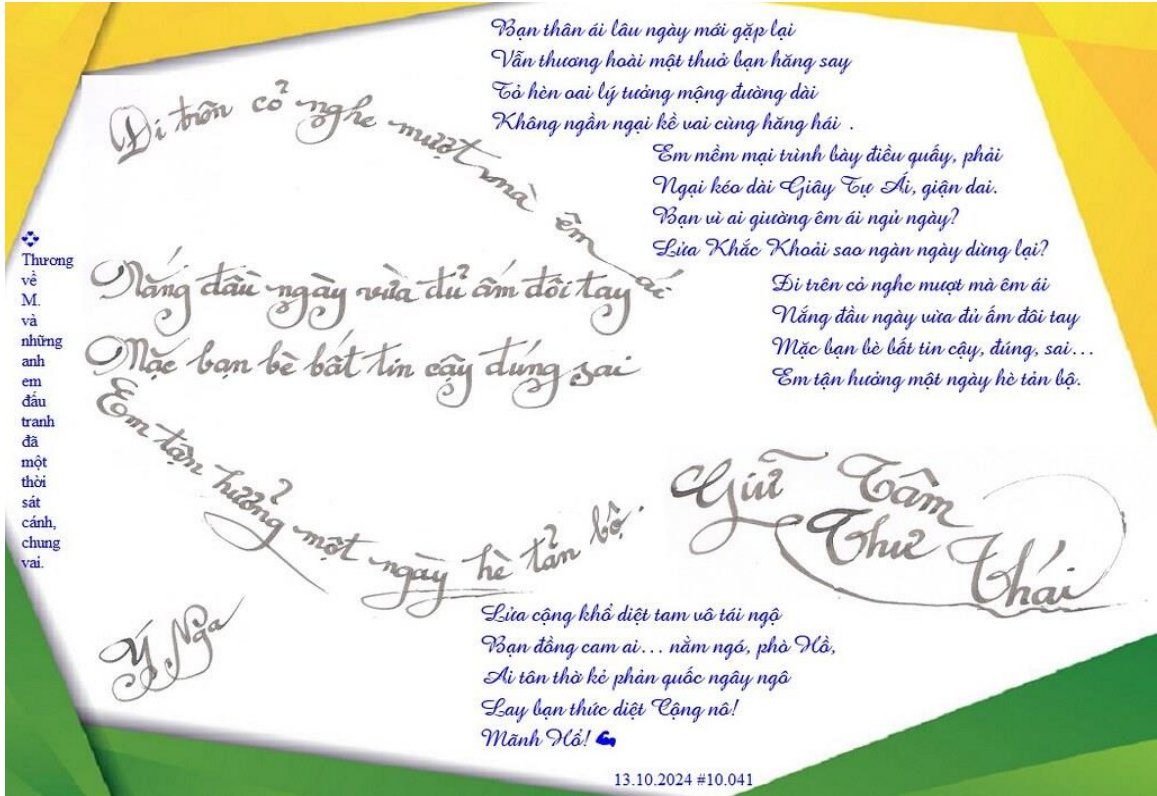 Bạn thân ái lâu ngày mới gặp lại
Vẫn thương hoài một thuở bạn hăng say
Tỏ hèn oai lý tưởng mộng đường dài
Không ngần ngại kề vai cùng hăng hái .
Em mềm mại trình bày điều quấy, phải
Ngại kéo dài Giây Tự Ái, giận dai.
Bạn vì ai giường êm ái ngủ ngày?
Lửa Khắc Khoải sao ngàn ngày dừng lại?
Đi trên cỏ nghe mượt mà êm ái
Nắng đầu ngày vừa đủ ấm đôi tay
Mặc bạn bè bất tin cậy, đúng, sai...
Em tận hưởng một ngày hè tản bộ.
Đi trên cỏ nghe mượt mà êm ái
Nắng đầu ngày vừa đủ ấm đôi tay
Mặc bạn bè bất tin cậy đúng sai
Em tận hưởng một ngày hè tản bộ.
Giữ Tâm
Thư Thái
Ý Nga
Thương
về
M.
và
những
anh
em
đấu
tranh
đã
một
thời
sát
cánh,
chung
vai.
Lửa cộng khổ diệt tam vô tái ngộ
Bạn đồng cam ai... nằm ngó, phò Hồ,
Ai tôn thờ kẻ phản quốc ngây ngô
Lay bạn thức diệt Cộng nô!
Mãnh Hổ!
13.10.2024 #10.041